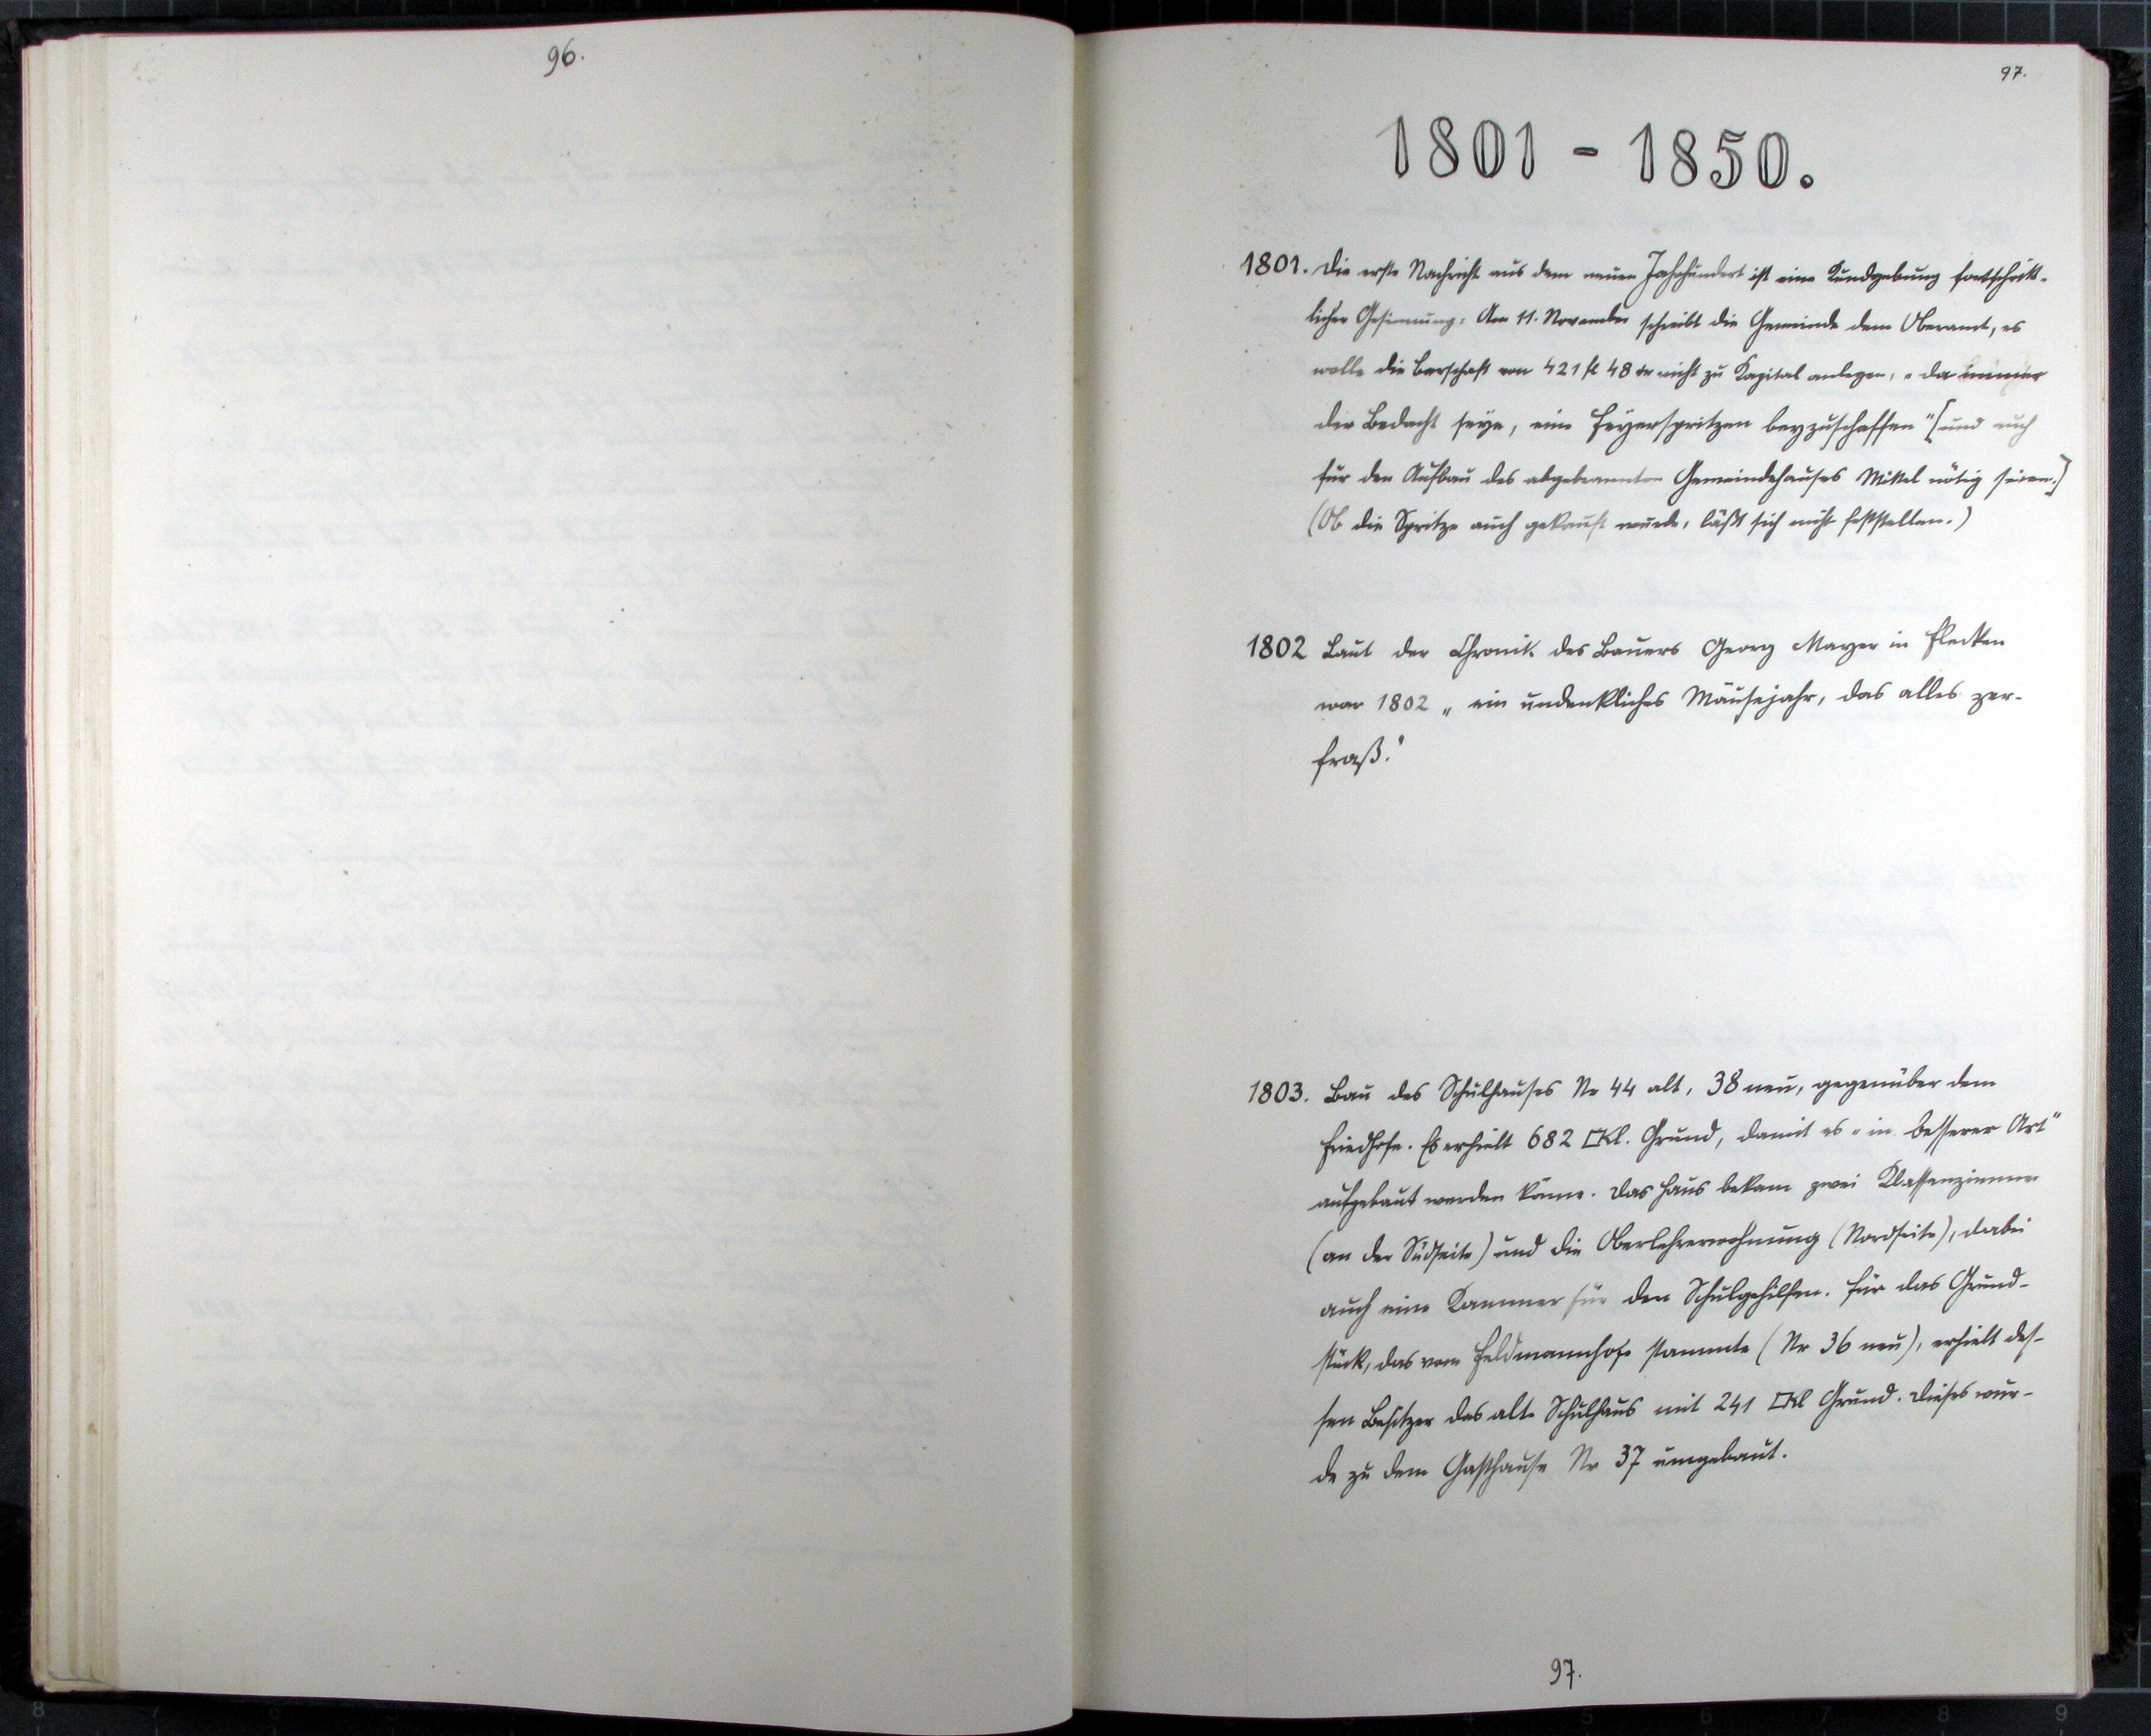 96.
97.
1801 - 1850.
1801. Die erste Nachricht aus dem neuen Jahrhundert ist eine Kundgebung fortschritt-
licher Gesinnung: Am 11. November schreibt die Gemeinde dem Oberamt, es
wolle die Barschaft von 421 fl 48 kr nicht zu Kapital anlegen, „da immer
der Bedacht seye, eine Feyerspritzen beyzuschaffen" [und auch
für den Aufbau des abgebrannten Gemeindehauses Mittel nötig seien.]
(Ob die Spritze auch gekauft wurde, läßt sich nicht feststellen.)
1802 Laut der Chronik des Bauers Georg Mayer in Flecken
war 1802 „ein undenkliches Mäusejahr, das alles zer-
fraß."
1803. Bau des Schulhauses Nr 44 alt, 38 neu, gegenüber dem
Friedhofe. Es erhielt 682 □Kl. Grund, damit es „in besserer Art"
aufgebaut werden könne. Das Haus bekam zwei Klassenzimmer
(an der Südseite) und die Oberlehrerwohnung (Nordseite), dabei
auch eine Kammer für den Schulgehilfen. Für das Grund-
stück, das vom Feldmannhofe stammte (Nr 36 neu), erhielt des-
sen Besitzer das alte Schulhaus mit 241 □Kl Grund. Dieses wur-
de zu dem Gasthause Nr 37 umgebaut.
97.